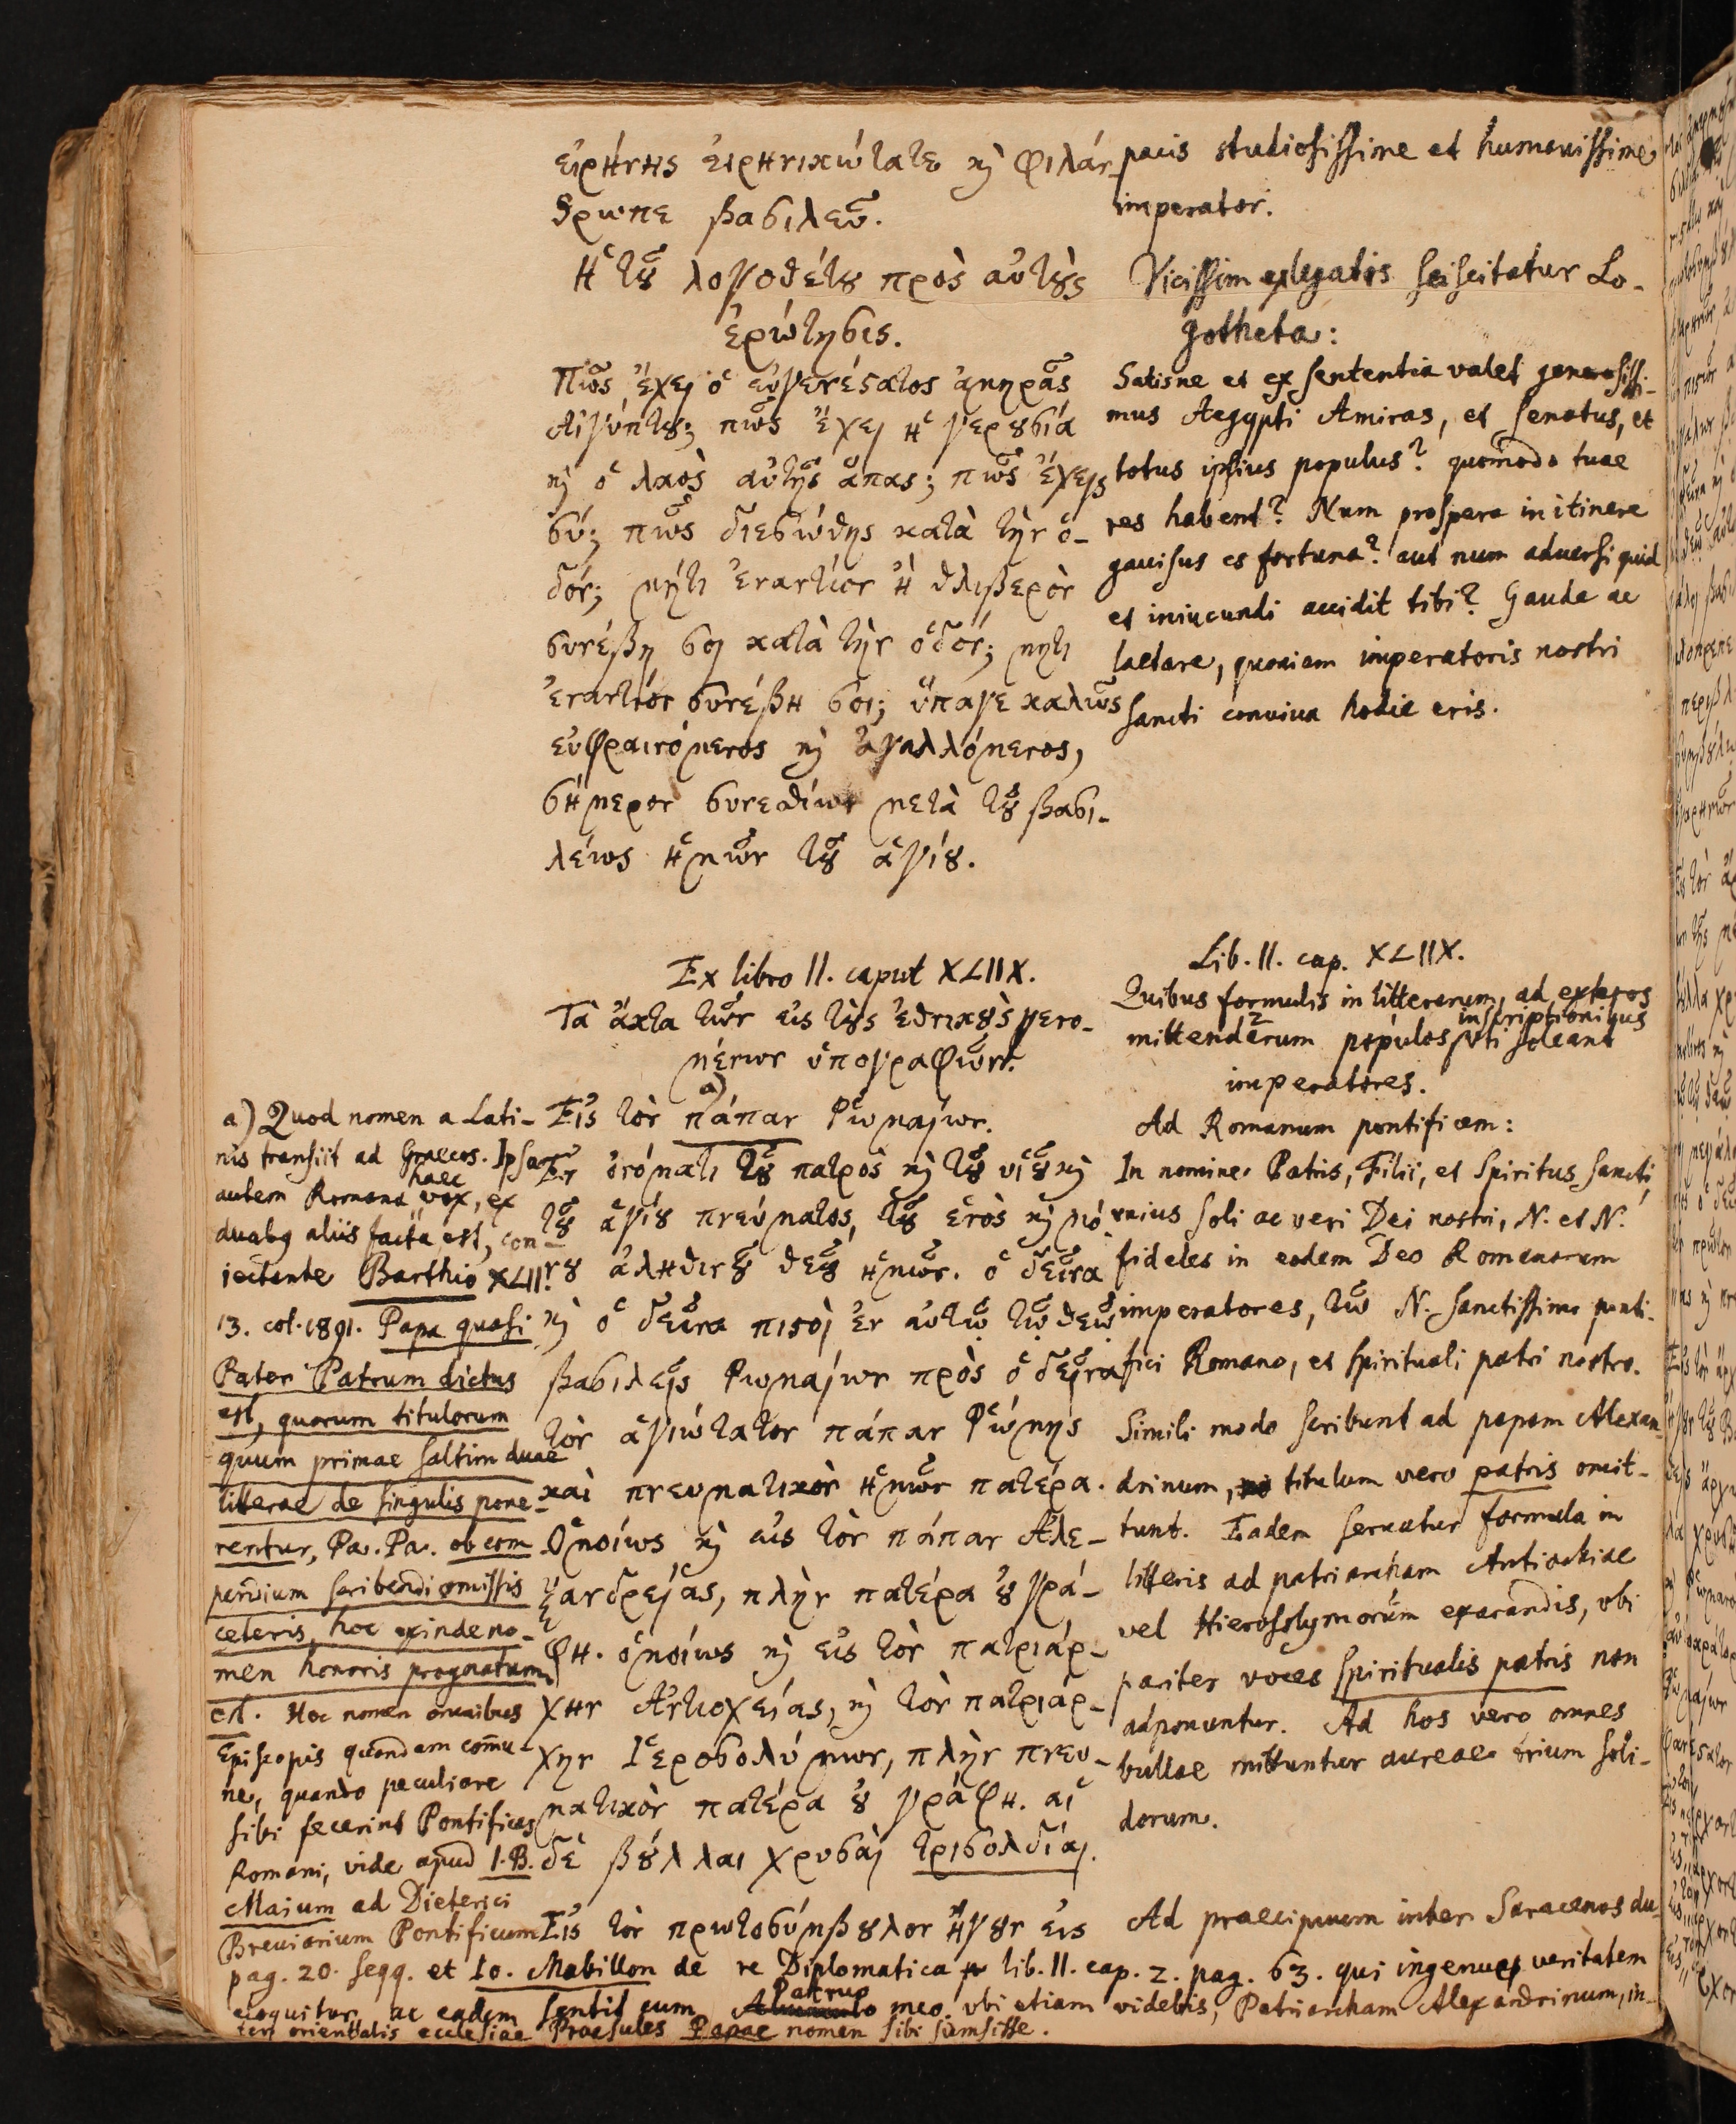 εἰρήνης εἰρηνικώτατε καὶ φιλάν-
θρωπε βασιλεῦ.
Ἡ τοῦ λογοθέτου πρὸς αὐτοὺς
ἐρώτησις.
Πῶς ἔχει ὁ εὐγενέστατος ἀμηρᾶς
Αἰγύπτου; πῶς ἔχει ἡ γερουσία
καὶ ὁ λαὸς αὐτῆς ἅπας; πῶς ἔχεις
σύ; πῶς διεσώθης κατὰ τὴν ὁ-
δόν; μήτι ἐναντίον ἢ θλιβερὸν
συνέβη σοι κατὰ τὴν ὁδόν; μητι
ἐναντίον συνέβη σοι; ὕπαγε καλῶς
εὐφραινόμενος καὶ ἀγαλλόμενος,
σήμερον συνεσθίων μετὰ τοῦ βασι-
λέως ἡμῶν τοῦ ἁγίου.
pacis studiosissime et humanissime
imperator.
Vicissim ex legatis sciscitatur Lo-
gotheta:
Satisne et ex sententia valet generosissi-
mus Aegypti Amiras, et senatus, et
totus ipsius populus? quomodo tuae
res habent? Num prospera in itinere
gavisus es fortuna? aut num adversi quid
et iniucundi accidit tibi? Gaude ac
laetare, quoniam imperatoris nostri
sancti conviva hodie eris.
Ex libro II. caput XLIIX.
Τὰ ἄκτα τῶν εἰς τοὺς ἐθνικοὺς γενο-
μένων ὑπογραφῶν.
Εἰς τὸν πάπαν a) Ῥωμαίων.
Ἐν ὀνόματι τοῦ πατρὸς καὶ τοῦ υἱοῦ καὶ
τοῦ ἁγίου πνεύματος, τοῦ ἑνὸς καὶ μό-
νου ἀληθινοῦ θεοῦ ἡμῶν. ὁ δεῖνα
καὶ ὁ δεῖνα πιστοὶ ἐν αὐτῷ τῷ θεῷ
βασιλεῖς Ῥωμαίων πρὸς ὁ δεῖνα
τὸν ἁγιώτατον πάπαν Ῥώμης
καὶ πνευματικὸν ἡμῶν πατέρα.
Ὁμοίως καὶ εἰς τὸν πάπαν Ἀλε-
ξανδρείας, πλὴν πατέρα οὐ γρά-
φη. ὁμοίως καὶ εἰς τὸν πατριάρ-
χην Ἀντιοχείας, καὶ τὸν πατριάρ-
χην Ἱεροσολύμων, πλὴν πνευ-
ματικὸν πατέρα οὐ γράφη. αἱ
δὲ βούλλαι χρυσαῖ τρισολδίαι.
Εἰς τὸν πρωτοσύμβουλον ἤγουν εἰς
Lib. II. cap. XLIIX.
Quibus formulis in litterarum, ad exteros
mittendarum populos inscriptionibus uti soleant
imperatores.
Ad Romanum pontificem:
In nomine Patris, Filii, et Spiritus sancti,
unius soli ac veri Dei nostri, N. et N.
fideles in eodem Deo Romanorum
imperatores, τῷ N. sanctissimo ponti-
fici Romano, et spirituali patri nostro.
Simili modo scribunt ad papam Alexan-
drinum, titulum vero patris omit-
tunt. Eadem servatur formula in
litteris ad patriarcham Antiochiae
vel Hierosolymorum exarandis, ubi
pariter voces spiritualis patris non
adponuntur. Ad hos vero omnes
bullae mittuntur aureae trium soli-
dorum.
Ad praecipuum inter Saracenos du-
a) Quod nomen a Lati-
nis transiit ad Graecos. Ipsa
autem Romana haec vox, ex
duabus aliis facta est, con-
iectante Barthio XLII.
13. col. 1891. Papa quasi
Pater Patrum dictus
est, quorum titulorum
quum primae saltim duae
litterae de singulis pone-
rentur, Pa. Pa. ob com
pendium scribendi omissis
ceteris, hoc exinde no-
men honoris prognatum
est. Hoc nomen omnibus
Episcopis quondam commu-
ne, quando peculiare
sibi fecerint Pontifices
Romani, vide apud I. B.
Maium ad Dieterici
Breviarium Pontificum
pag. 20. seqq. et Io. Mabillon de re Diplomatica lib. II. cap. 2. pag. 63. qui ingenue veritatem
eloquitur, ac eadem sentit cum Patruo meo. ubi etiam videbis, Patriarcham Alexandrinum, in-
ter orientalis ecclesiae Praesules Papae nomen sibi sumsisse.